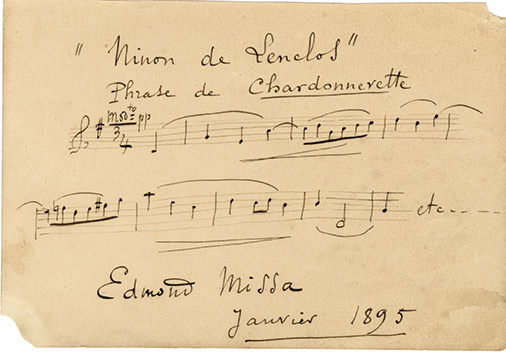 "Ninon de Lenclos"
Phrase de Chardonnerette
Mod<sup>to</sup> pp
3
4
etc.....
Edmond Missa
Janvier 1895